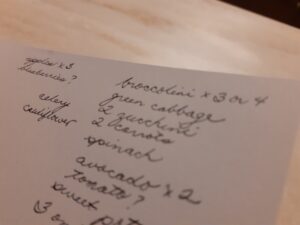 apples x 3
blueberries?
celery
cauliflower
broccolini x 3 or 4
green cabbage
2 zucchini
2 carrots
spinach
avocado x 2
tomato?
sweet
3